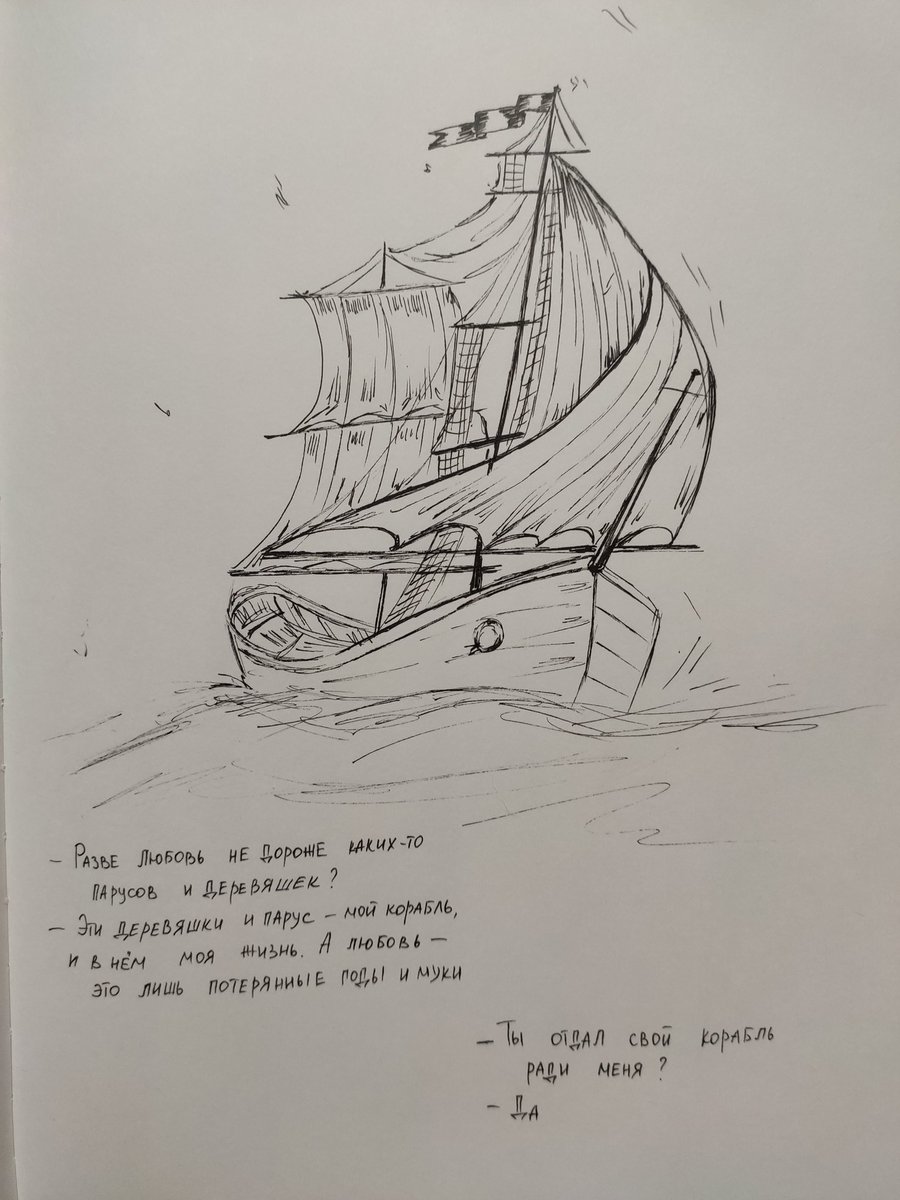 – Разве любовь не дороже каких-то
парусов и деревяшек?
– Эти деревяшки и парус – мой корабль,
и в нём моя жизнь. А любовь –
это лишь потерянные годы и муки
– Ты отдал свой корабль
ради меня?
– Да